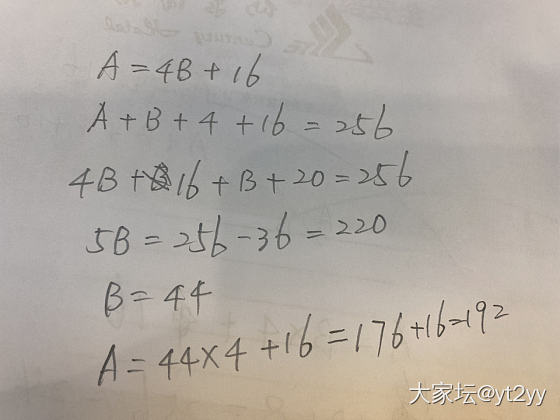 A=4B+16
A+B+4+16=256
4B+16+B+20=256
5B=256-36=220
B=44
A=44×4+16=176+16=192
大家坛@yt2yy